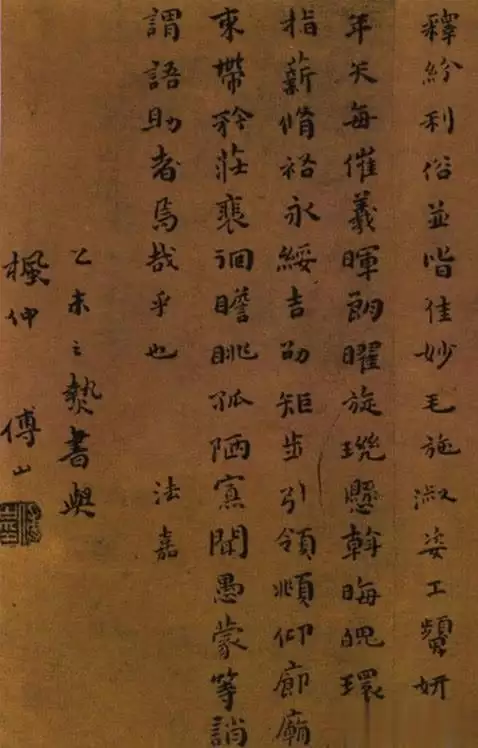 釋紛利俗並皆佳妙毛施淑姿工顰妍
年矢每催羲暉朗曜旋璣懸斡晦魄環
指薪脩祜永綏吉劭矩步引領頫仰廊廟
束帶矜莊裵徊瞻眺孤陋寡聞愚蒙等誚
謂語助者焉哉乎也 法嘉
乙未之熱書與
楓仲 傅山